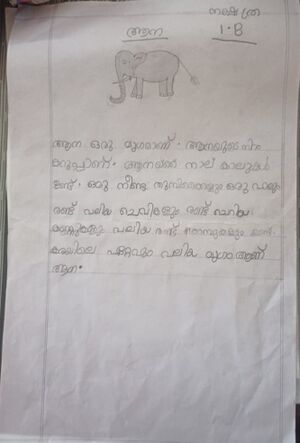 നക്ഷത്ര
1.B
ആന
ആന ഒരു മൃഗമാണ്. ആനയുടെ നിറം
കറുപ്പാണ്. ആനക്ക് നാല് കാലുകൾ
ഉണ്ട്. ഒരു നീണ്ട തുമ്പിക്കൈയും ഒരു വാലും
രണ്ട് വലിയ ചെവികളും രണ്ട് ചെറിയ
കണ്ണുകളും വലിയ രണ്ട് കൊമ്പുകളും ഉണ്ട്.
കരയിലെ ഏറ്റവും വലിയ മൃഗം ആണ്
ആന.